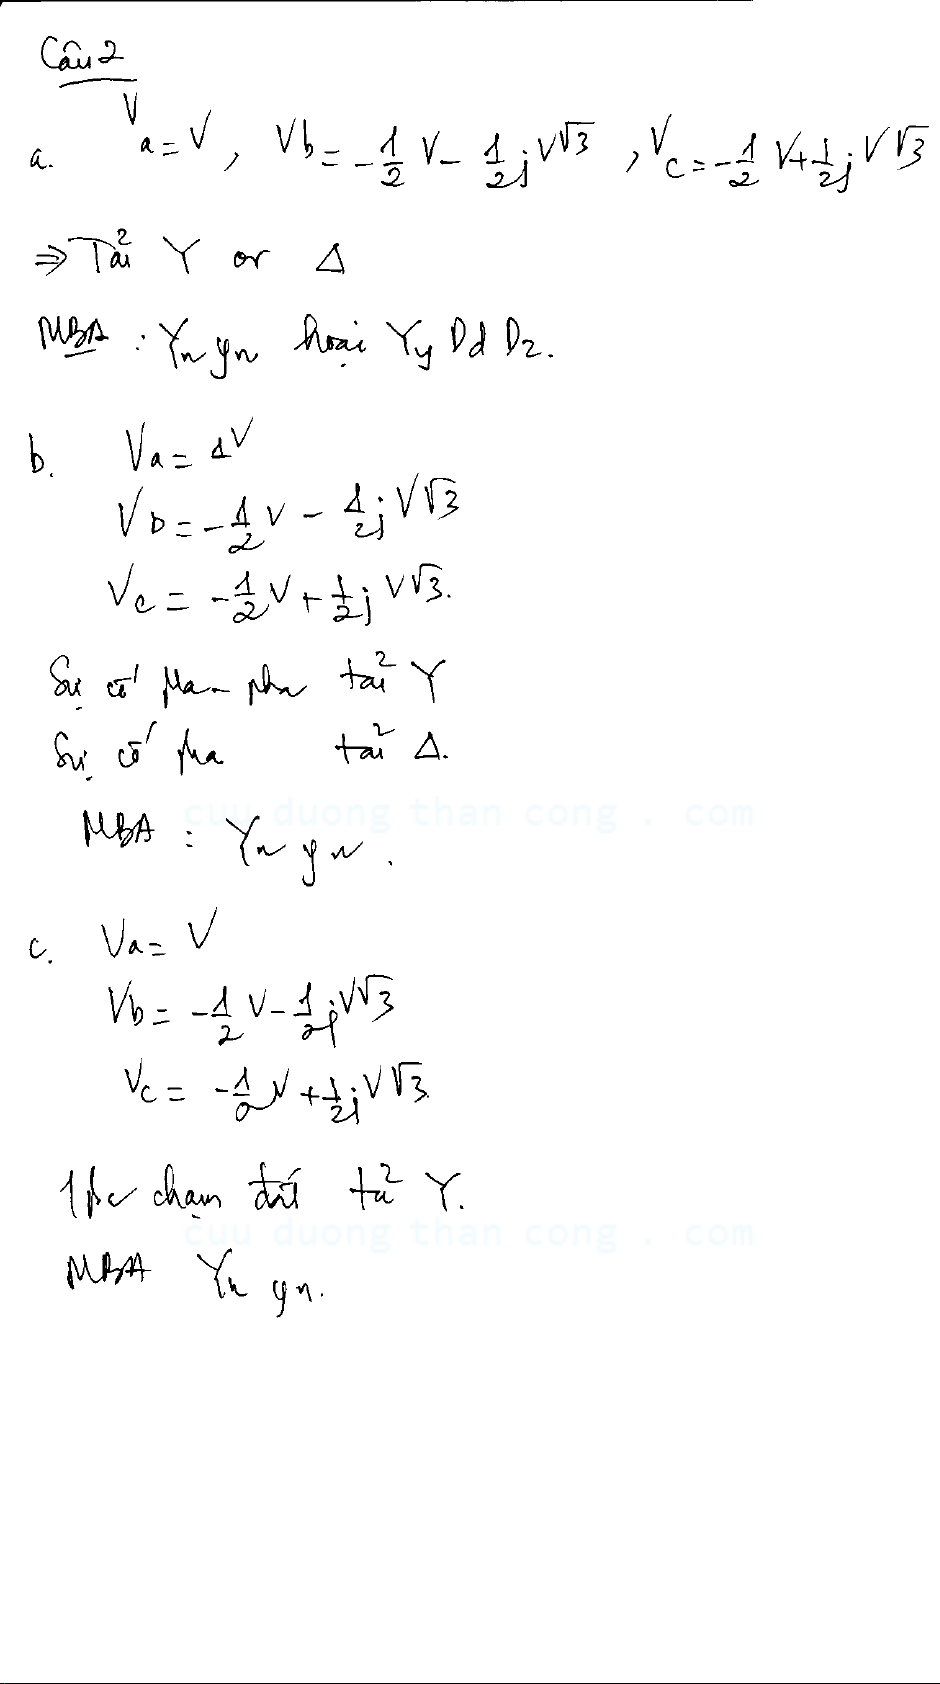 Câu 2
a. Va = V, Vb = -1/2 V - 1/2 j V√3, Vc = -1/2 V + 1/2 j V√3
⇒ Tải Y or Δ
MBA : Yn yn hoại Yy Dd Dz.
b. Va = 1V
Vb = -1/2 V - 1/2 j V√3
Vc = -1/2 V + 1/2 j V√3.
Sự cố pha - pha tải Y
Sự cố pha tải Δ.
cuu duong than cong . com
MBA : Yn yn.
c. Va = V
Vb = -1/2 V - 1/2 j V√3
Vc = -1/2 V + 1/2 j V√3
1 pha chạm đất tải Y.
cuu duong than cong . com
MBA Yn yn.